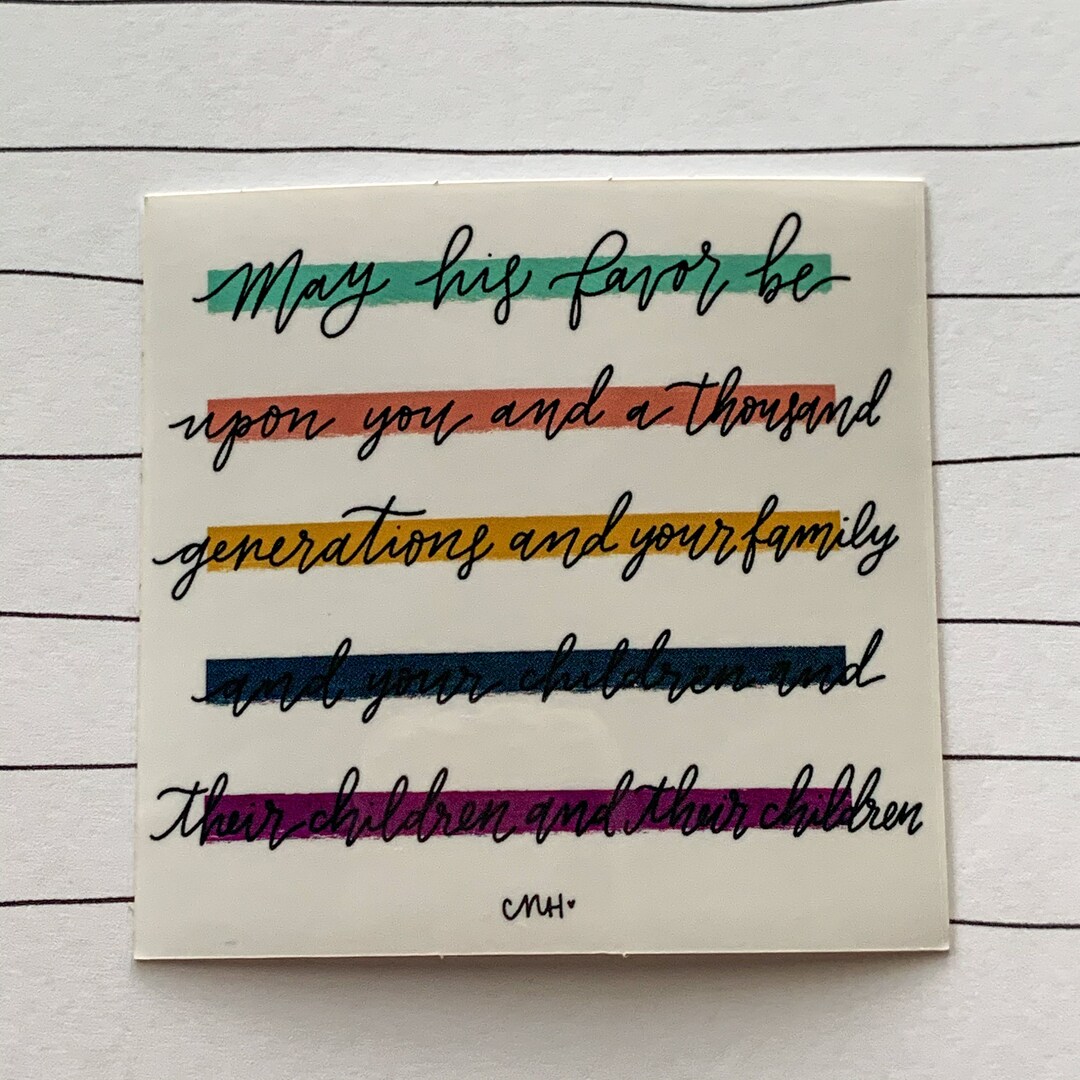 May his favor be
upon you and a thousand
generations and your family
and your children and
their children and their children
CNH